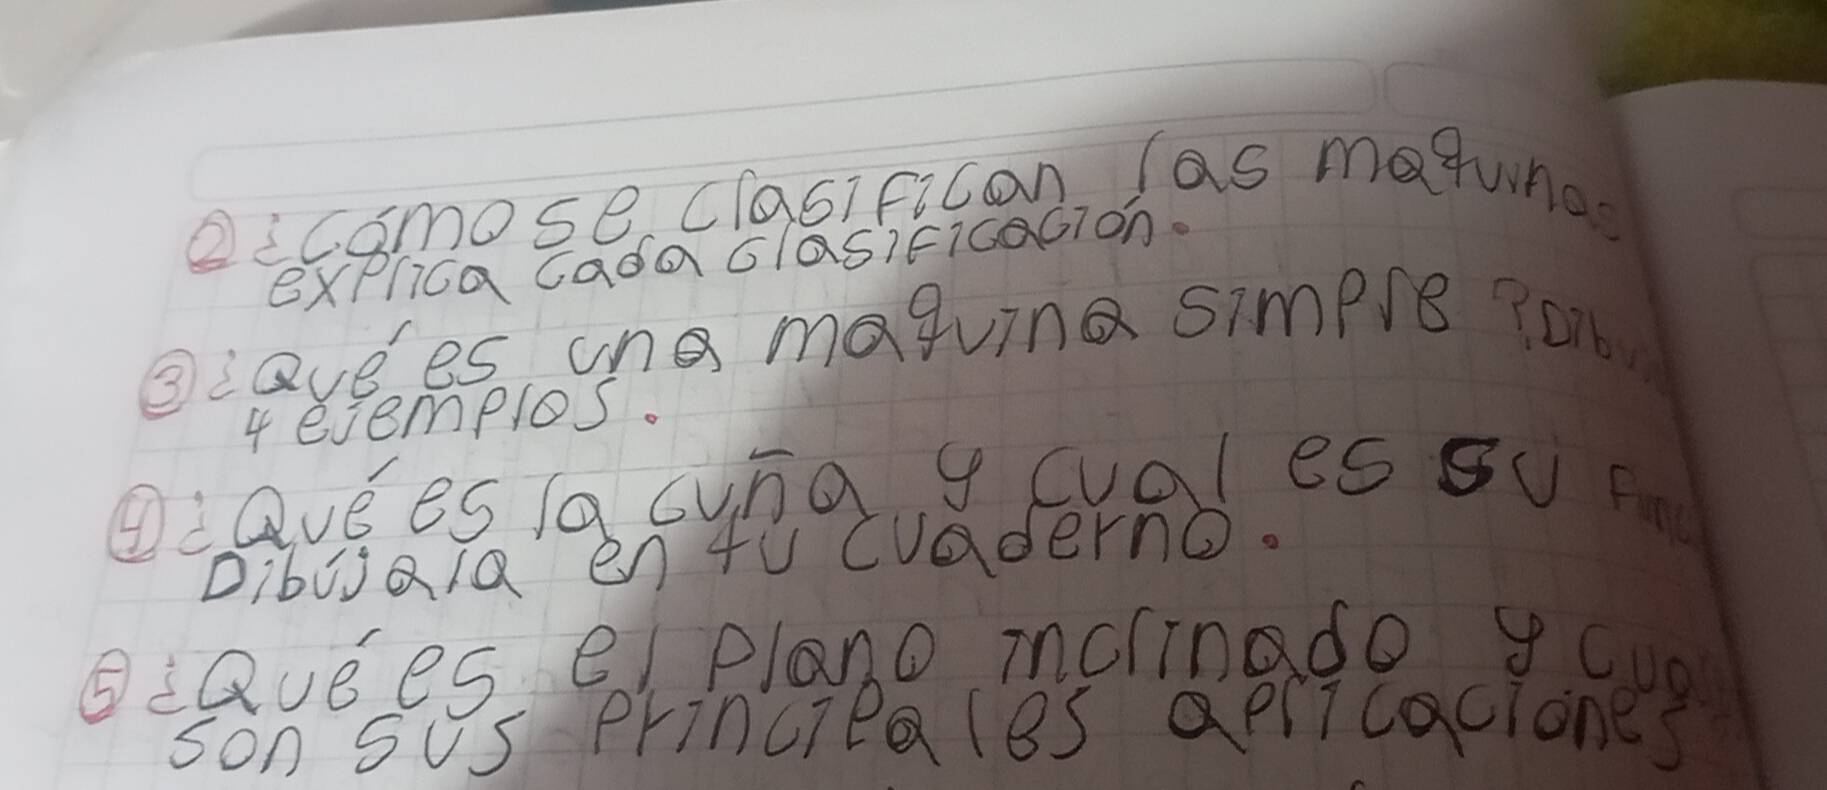 ② ¿cómo se clasifican las maquinas
explica cada clasificación.
③ ¿Qué es una maquina simple? Dibu
4 ejemplos.
④ ¿Qué es la cuña y cual es su
Dibújala en tu cuaderno.
⑤ ¿Qué es el plano inclinado y cua
son sus principales aplicaciones